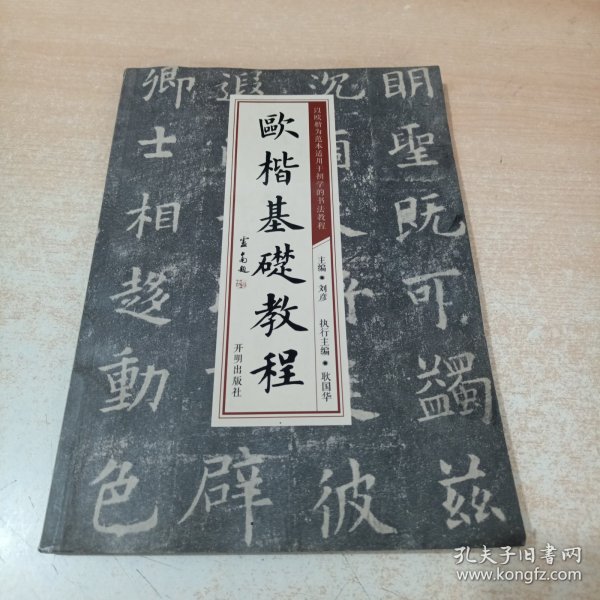 以欧楷为范本适用于初学的书法教程
歐楷基礎教程
主编 刘彦
执行主编 耿国华
开明出版社
明聖既可蠲兹
沉
彼
遐
辟
卿士相趍動色
孔夫子旧书网
www.kongfz.com